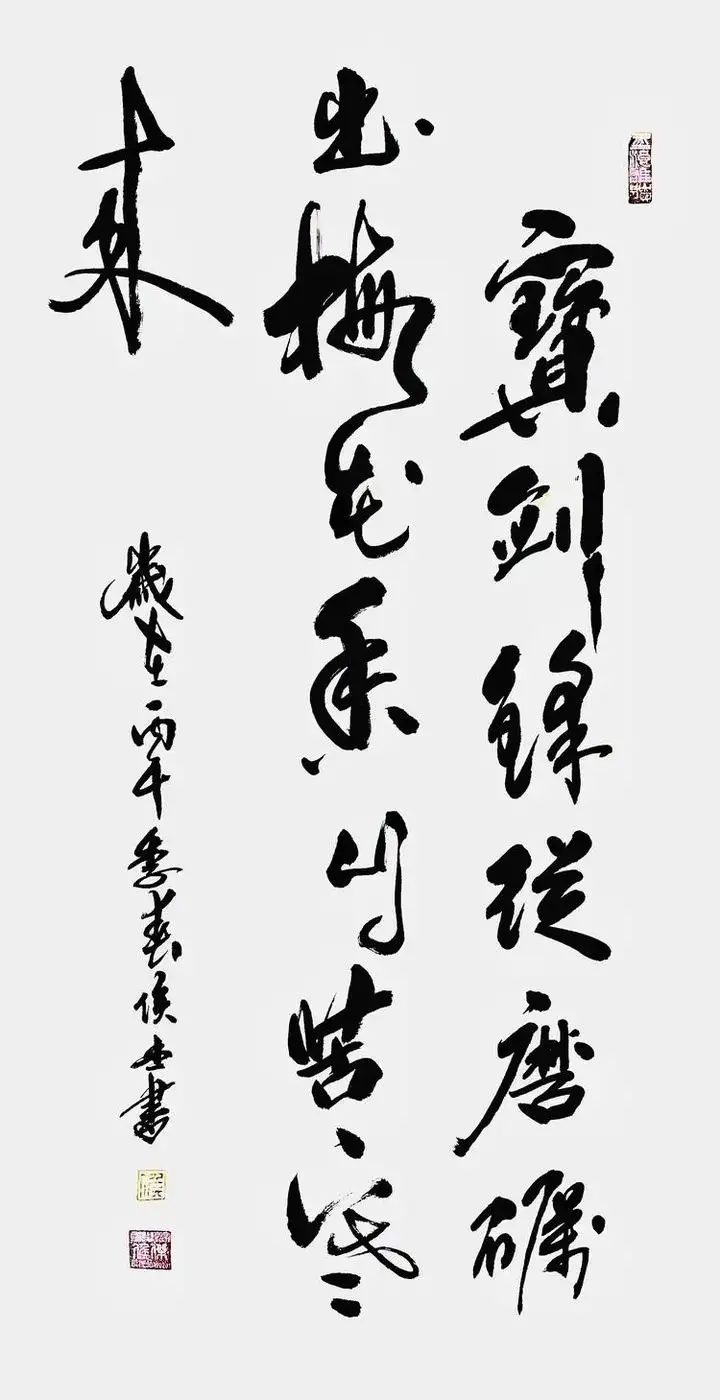 寶劍鋒從磨礪
出梅花香自苦寒
來
歲在丙午季春侯杰書